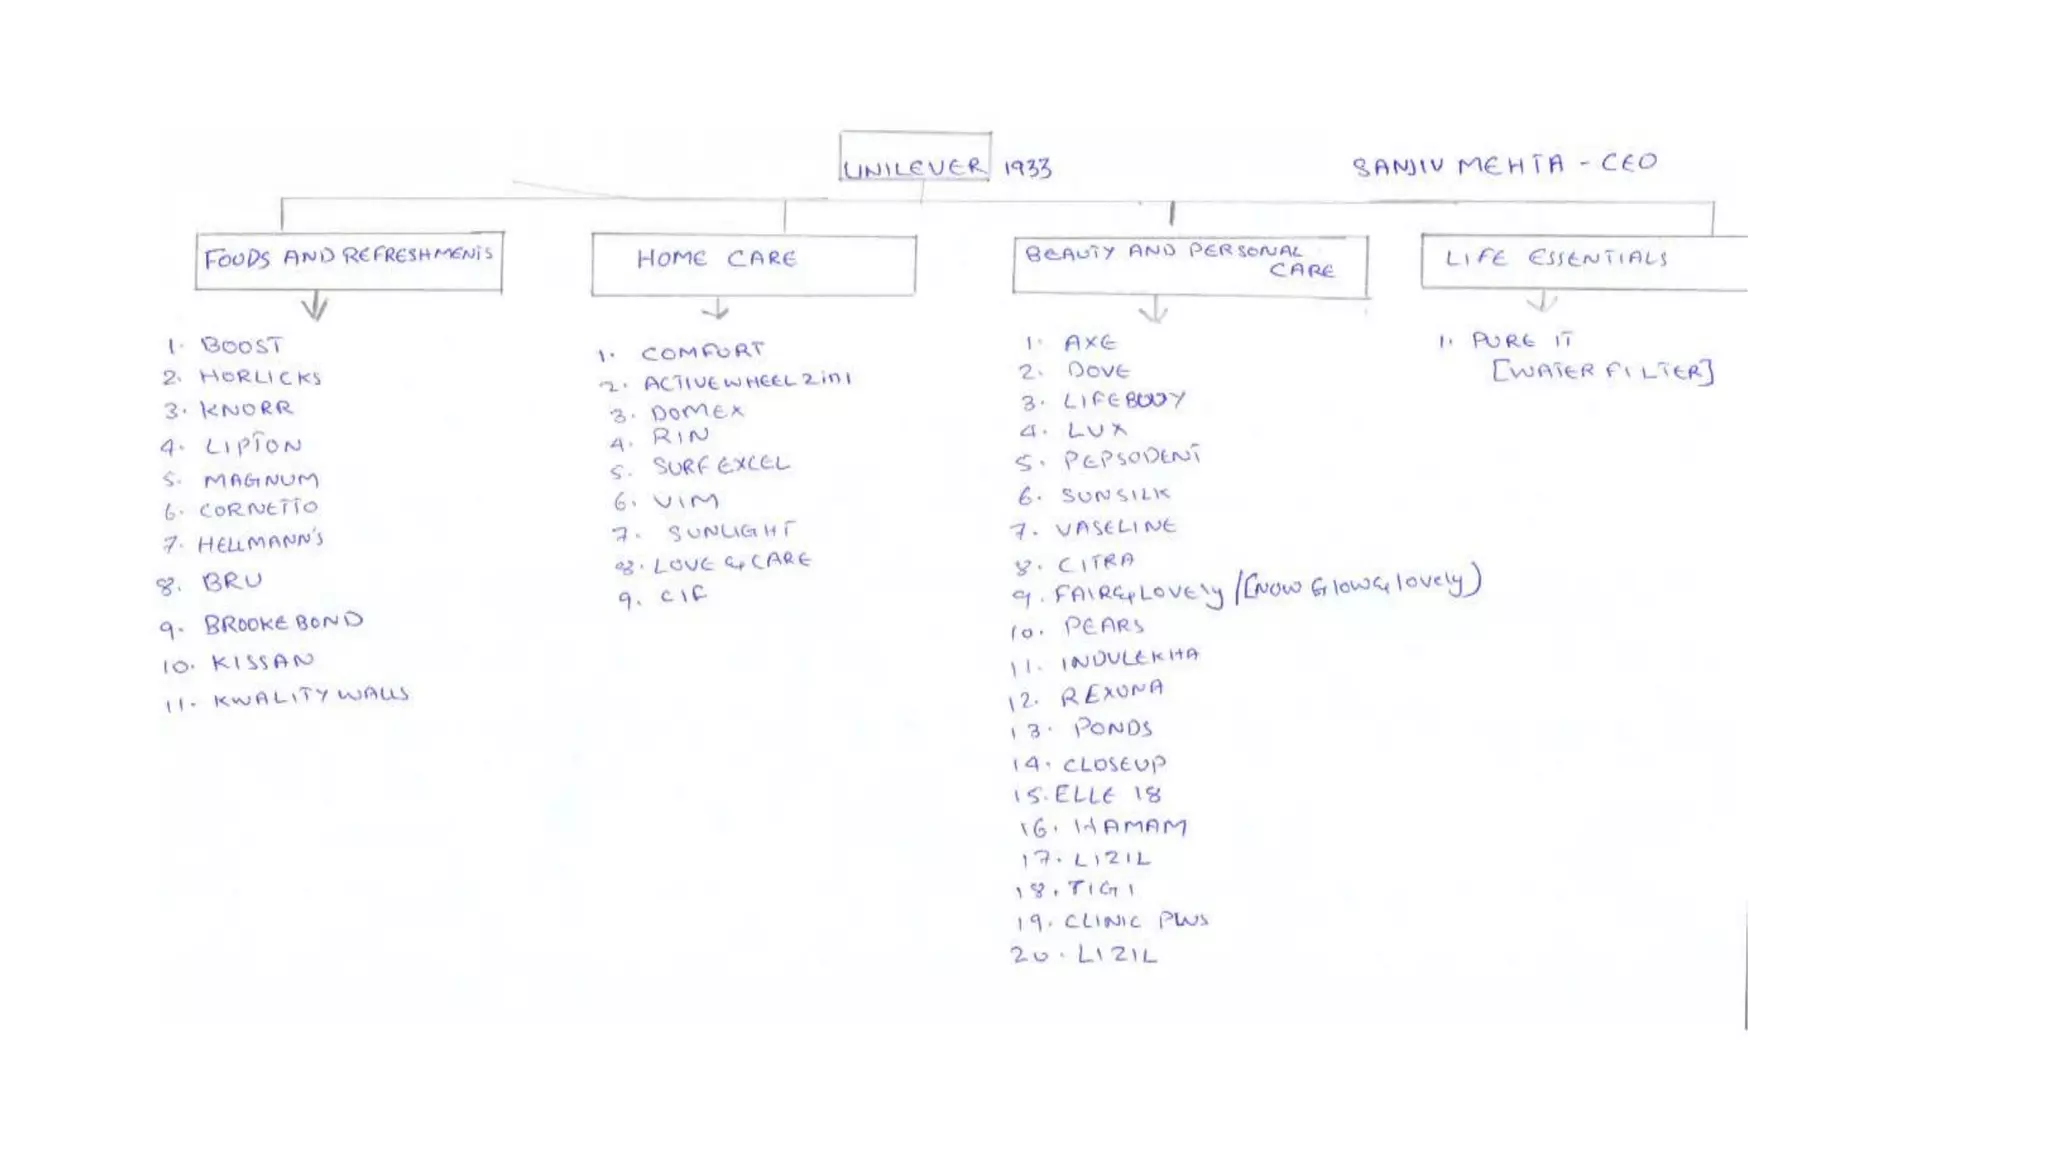 UNILEVER 1933
SANJIV MEHTA - CEO
FOODS AND REFRESHMENTS
1. BOOST
2. HORLICKS
3. KNORR
4. LIPTON
5. MAGNUM
6. CORNETTO
7. HELLMANN'S
8. BRU
9. BROOKE BOND
10. KISSAN
11. KWALITY WALLS
HOME CARE
1. COMFORT
2. ACTIVE WHEEL 2in1
3. DOMEX
4. RIN
5. SURF EXCEL
6. VIM
7. SUNLIGHT
8. LOVE & CARE
9. CIF
BEAUTY AND PERSONAL
CARE
1. AXE
2. DOVE
3. LIFEBUOY
4. LUX
5. PEPSODENT
6. SUNSILK
7. VASELINE
8. CITRA
9. FAIR & LOVELY / [NOW Glow & lovely)
10. PEARS
11. INDULEKHA
12. REXONA
13. PONDS
14. CLOSEUP
15. ELLE 18
16. HAMAM
17. LIZIL
18. TIGI
19. CLINIC PLUS
20. LIZIL
LIFE ESSENTIALS
1. PURE IT
[WATER FILTER]